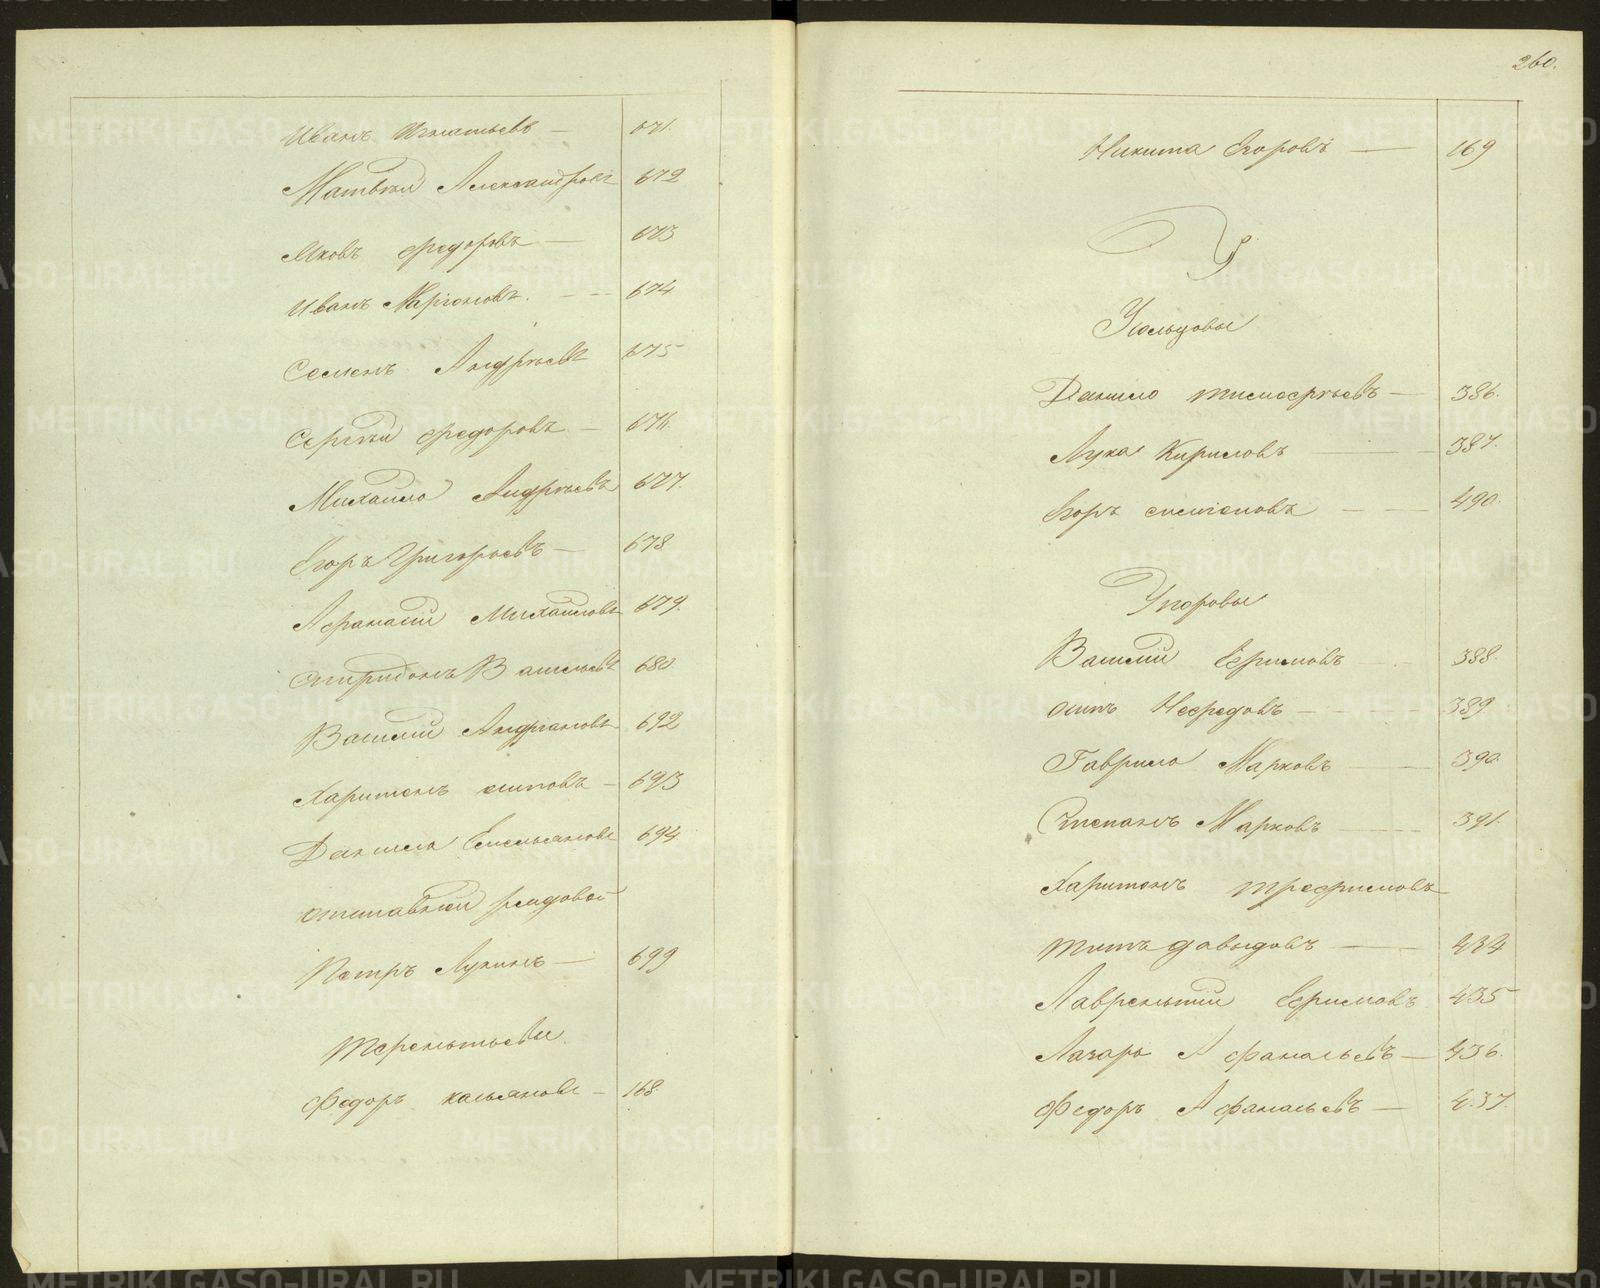 Иванъ Игнатьевъ — 671.
Матвѣй Александровъ 672
Яковъ Федоровъ — 673
Иванъ Ларіоновъ. — 674
Семенъ Андрѣевъ 675
Сергѣй Федоровъ — 676.
Михайло Андрѣевъ 677.
Егоръ Григорьевъ — 678
Афанасій Михайловъ 679.
Спиридонъ Васильевъ 680
Василій Андріановъ 692
Харитонъ Осиповъ — 693
Данило Емельяновъ 694.
Отставной рядовой
Петръ Лукинъ — 699
Терентьевы.
Федоръ Касьяновъ — 168
260.
Никита Егоровъ — 169
У
Усольцовы
Данило Тимофѣевъ — 386.
Лука Кириловъ — 387.
Егоръ — 490.
Упоровы
Василій Ефимовъ — 388.
Осипъ Нефедовъ — 389
Гаврило Марковъ — 390.
Степанъ Марковъ — 391.
Харитонъ Трефиловъ
Титъ Давыдовъ — 434
Лаврентій Ефимовъ 435
Лазарь Афанасьевъ — 436.
Федоръ Афанасьевъ — 437.
METRIKI.GASO-URAL.RU